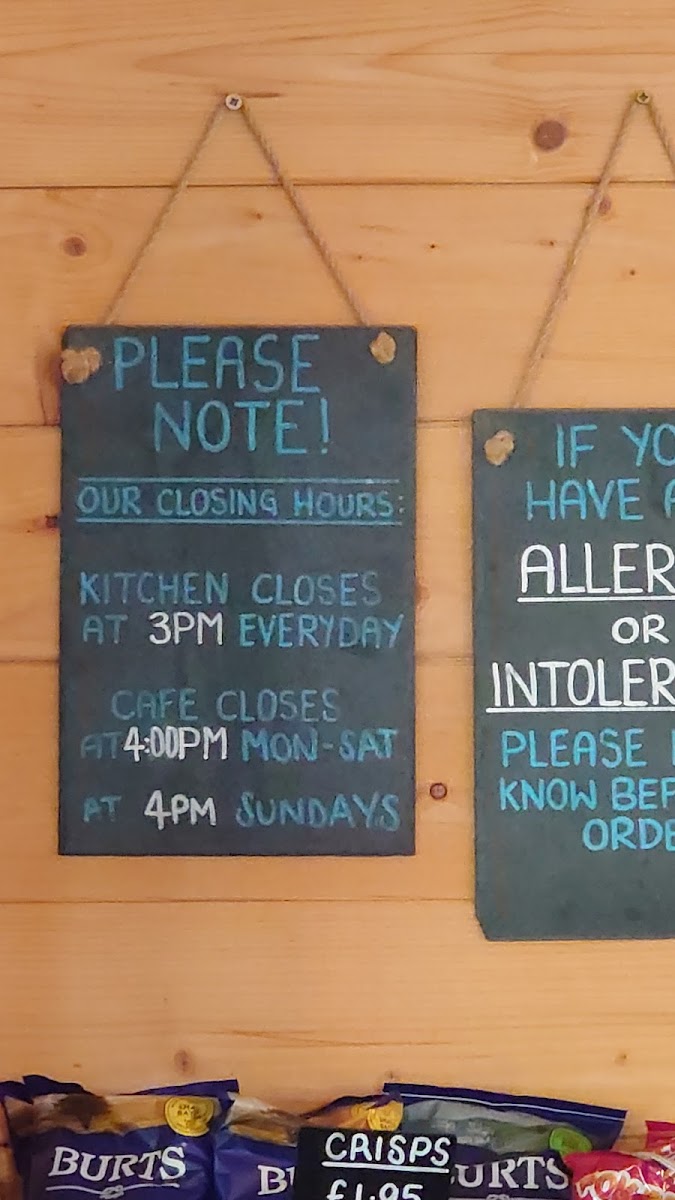 PLEASE
NOTE!
OUR CLOSING HOURS:
KITCHEN CLOSES
AT 3PM EVERYDAY
CAFE CLOSES
AT 4:00PM MON-SAT
AT 4PM SUNDAYS
IF YO
HAVE A
ALLER
OR
INTOLER
PLEASE
KNOW BEF
ORDE
BURTS
BU
URTS
CRISPS
£1.95